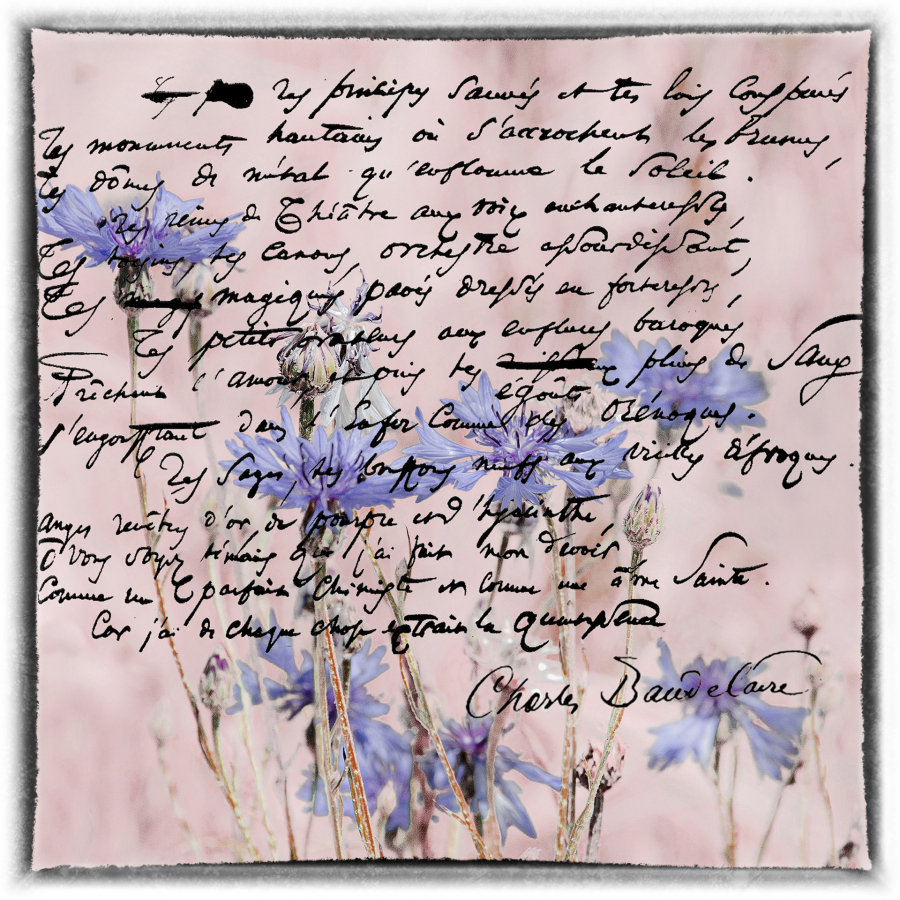 Tes principes sauvés et tes lois conspuées
Tes monuments hautains où s'accrochent les Brumes,
Tes dômes de métal qu'enflamme le Soleil.
Tes reines de Théâtre aux voix enchanteresses,
Tes tocsins, tes canons, orchestre assourdissant,
Tes magiques pavés dressés en forteresses,
Tes petits orateurs aux enflures baroques
Prêchant l'amour et puis tes pleins de Sang
égouts
S'engouffrant dans l'Enfer comme des Orénoques.
Tes Sages, tes bouffons neufs aux vieilles défroques.
Anges revêtus d'or de pourpre et d'hyacinthe,
O vous soyez témoins que j'ai fait mon devoir
Comme un parfait Chimiste et comme une âme Sainte.
Car j'ai de chaque chose extrait la quintessence
Charles Baudelaire